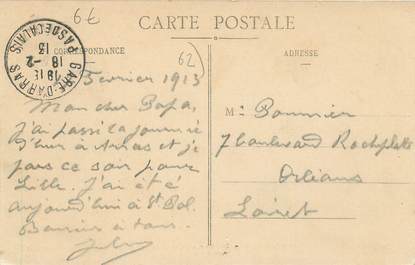 6€
CARTE POSTALE
CORRESPONDANCE
ADRESSE
62
GARE D'ARRAS
PAS DE CALAIS
18-2
13
Février 1913
Mon cher Papa,
J'ai passé la journée
d'hier à Arras et je
pars ce soir pour
Lille. J'ai été
aujourd'hui à St Pol.
Baisers à tous.
M:
7 boulevard Rocheplatte
Orléans
Loiret